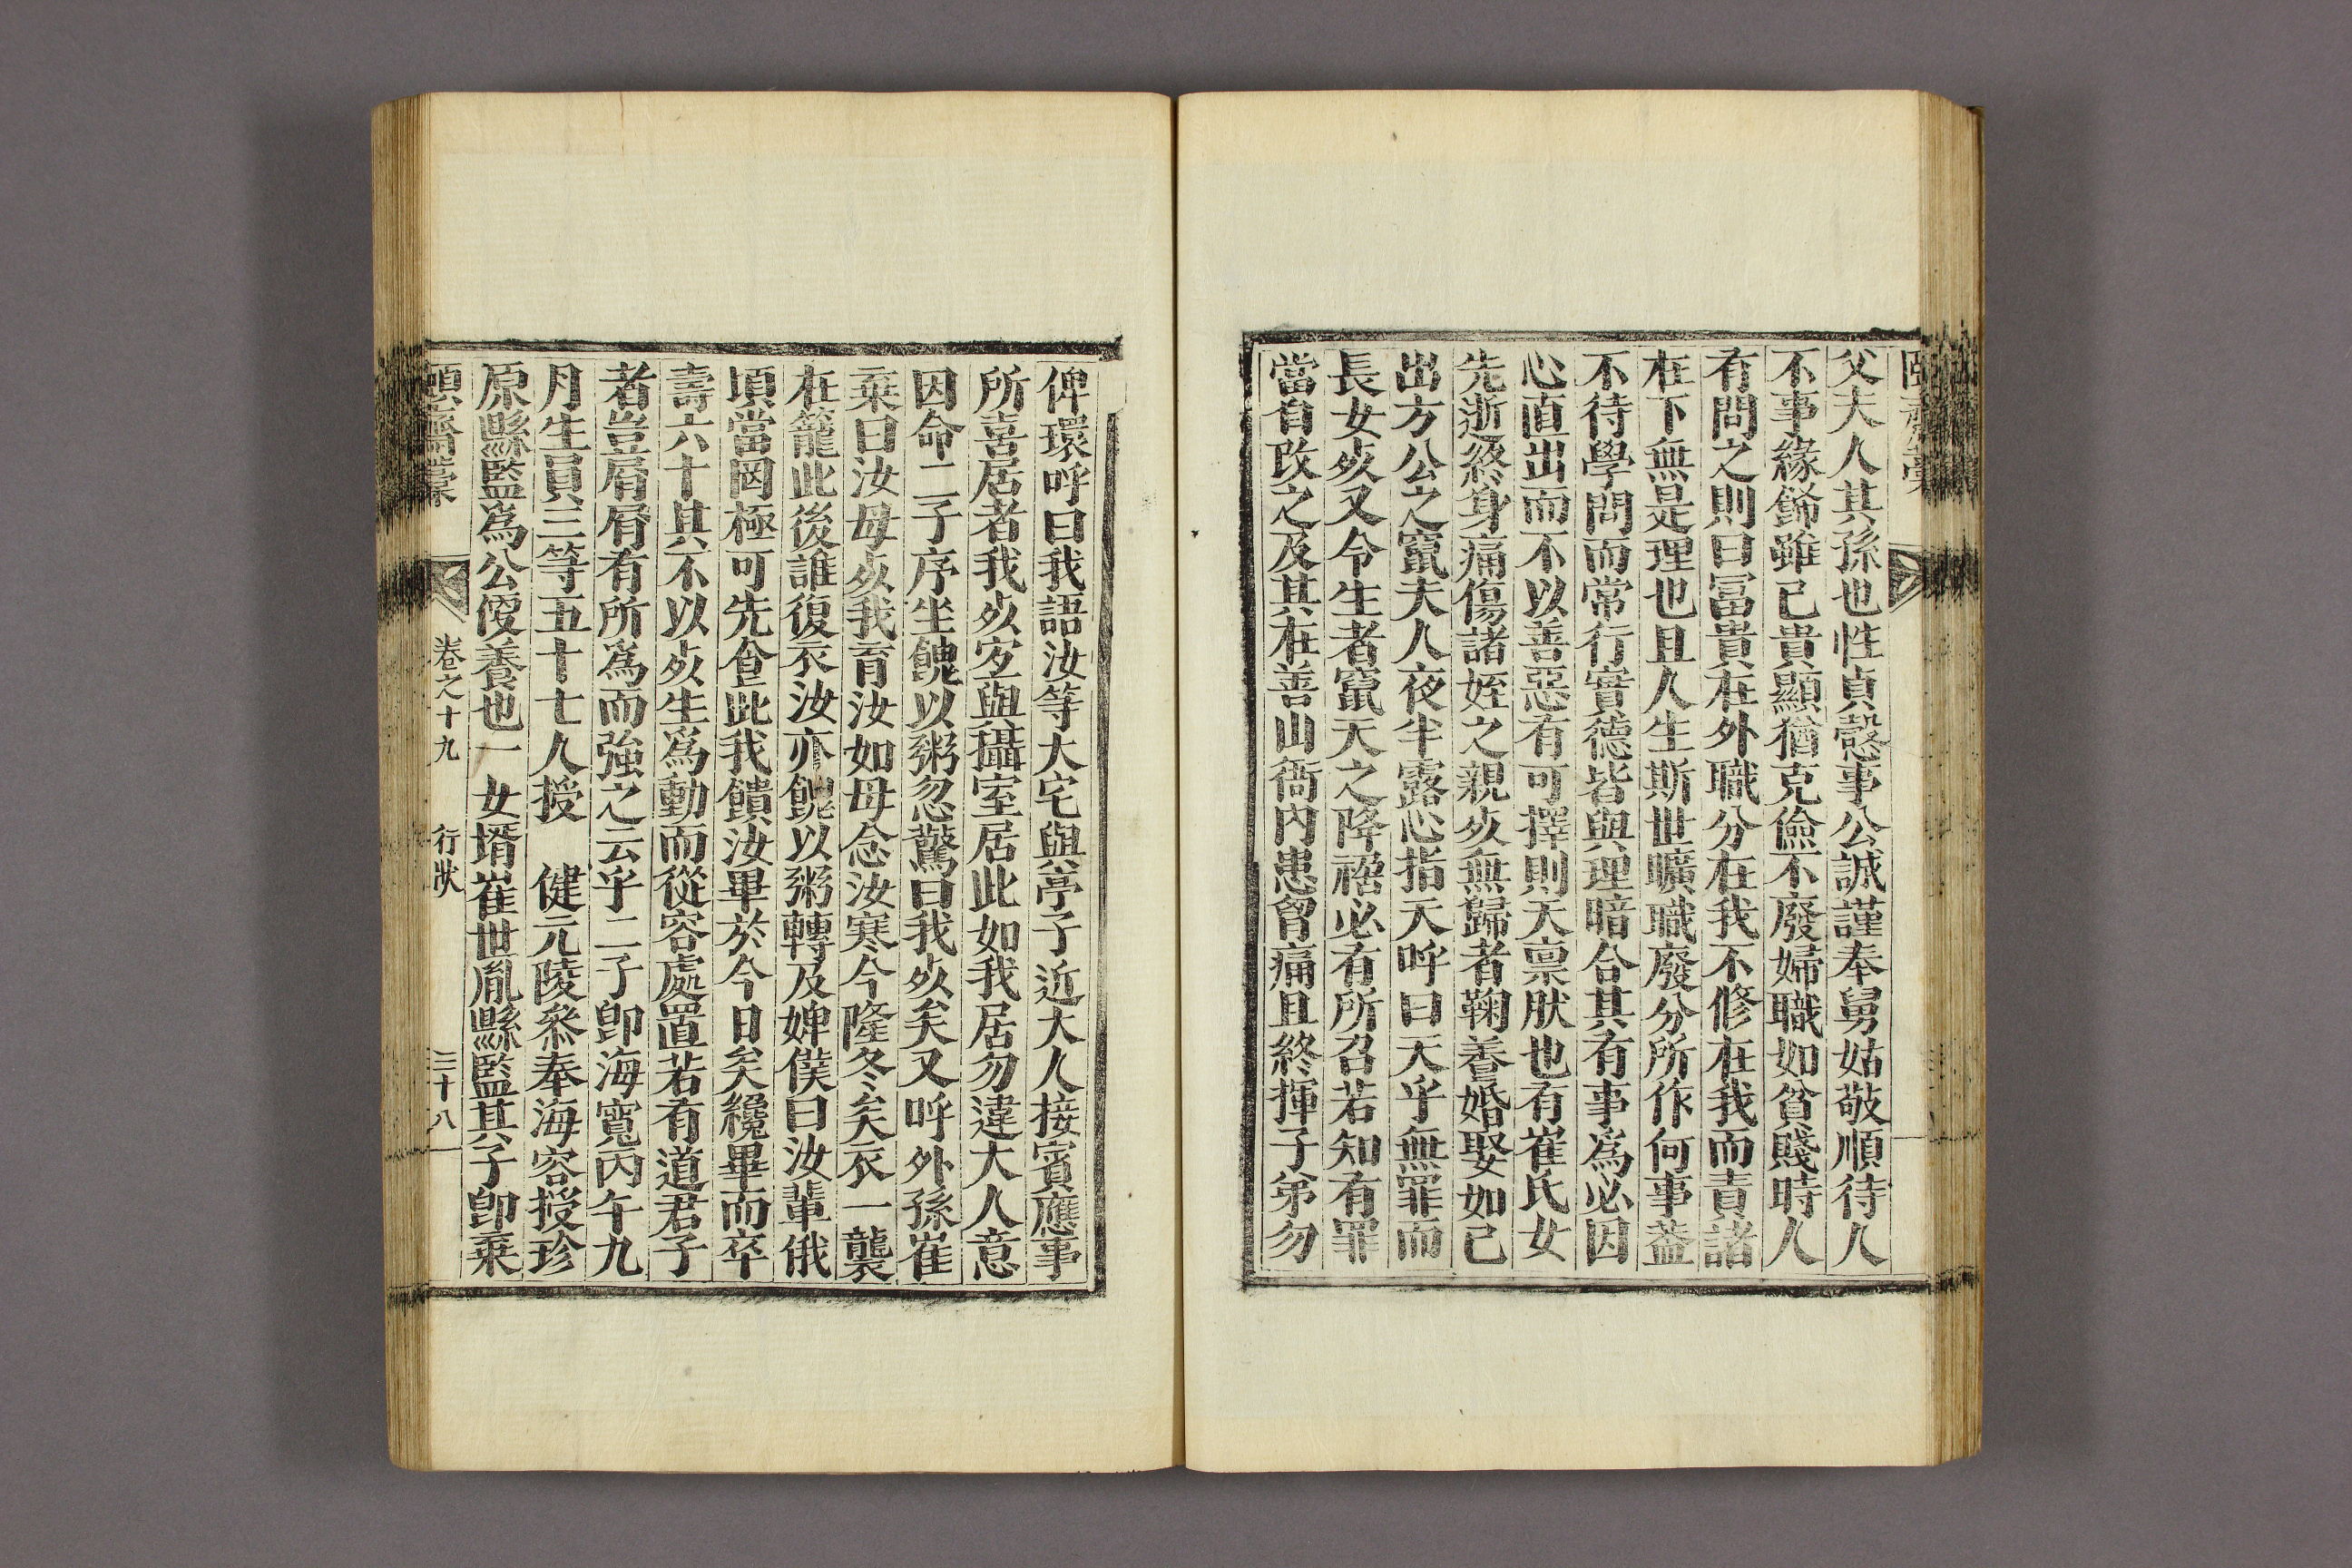 父夫人其孫也性貞慤事公誠謹奉舅姑敬順待人
不事緣餙雖已貴顯猶克儉不廢婦職如貧賤時人
有問之則曰冨貴在外職分在我不修在我而責諸
在下無是理也且人生斯世曠職廢分所作何事盖
不待學問而常行實德皆與理暗合其有事為必因
心直出而不以善惡有可擇則天禀肰也有崔氏女
先逝終身痛傷諸姪之親㱙無歸者鞠養婚娶如己
出方公之竄夫人夜半露心指天呼曰天乎無罪而
長女㱙又令生者竄天之降禍必有所召若知有罪
當自改之及其在善山衙內患胷痛且終揮子弟勿
俾環呼曰我語汝等大宅與亭子近大人接賓應事
所喜居者我㱙㝎與攝室居此如我居勿違大人意
因命二子序坐餽以粥忽驚曰我㱙矣又呼外孫崔
棄曰汝母㱙我育汝如母念汝寒今隆冬矣衣一襲
在籠此後誰復衣汝亦餽以粥轉及婢僕曰汝輩俄
頃當罔極可先食此我饋汝畢於今日矣纔畢而卒
壽六十其不以㱙生爲動而從容處置若有道君子
者豈屑屑有所爲而強之云乎二子卽海寬丙午九
月生員三等五十七人授　健元陵叅奉海容授珍
原縣監爲公便養也一女壻崔世胤縣監其子卽棄
卷之十九　行狀　三十八